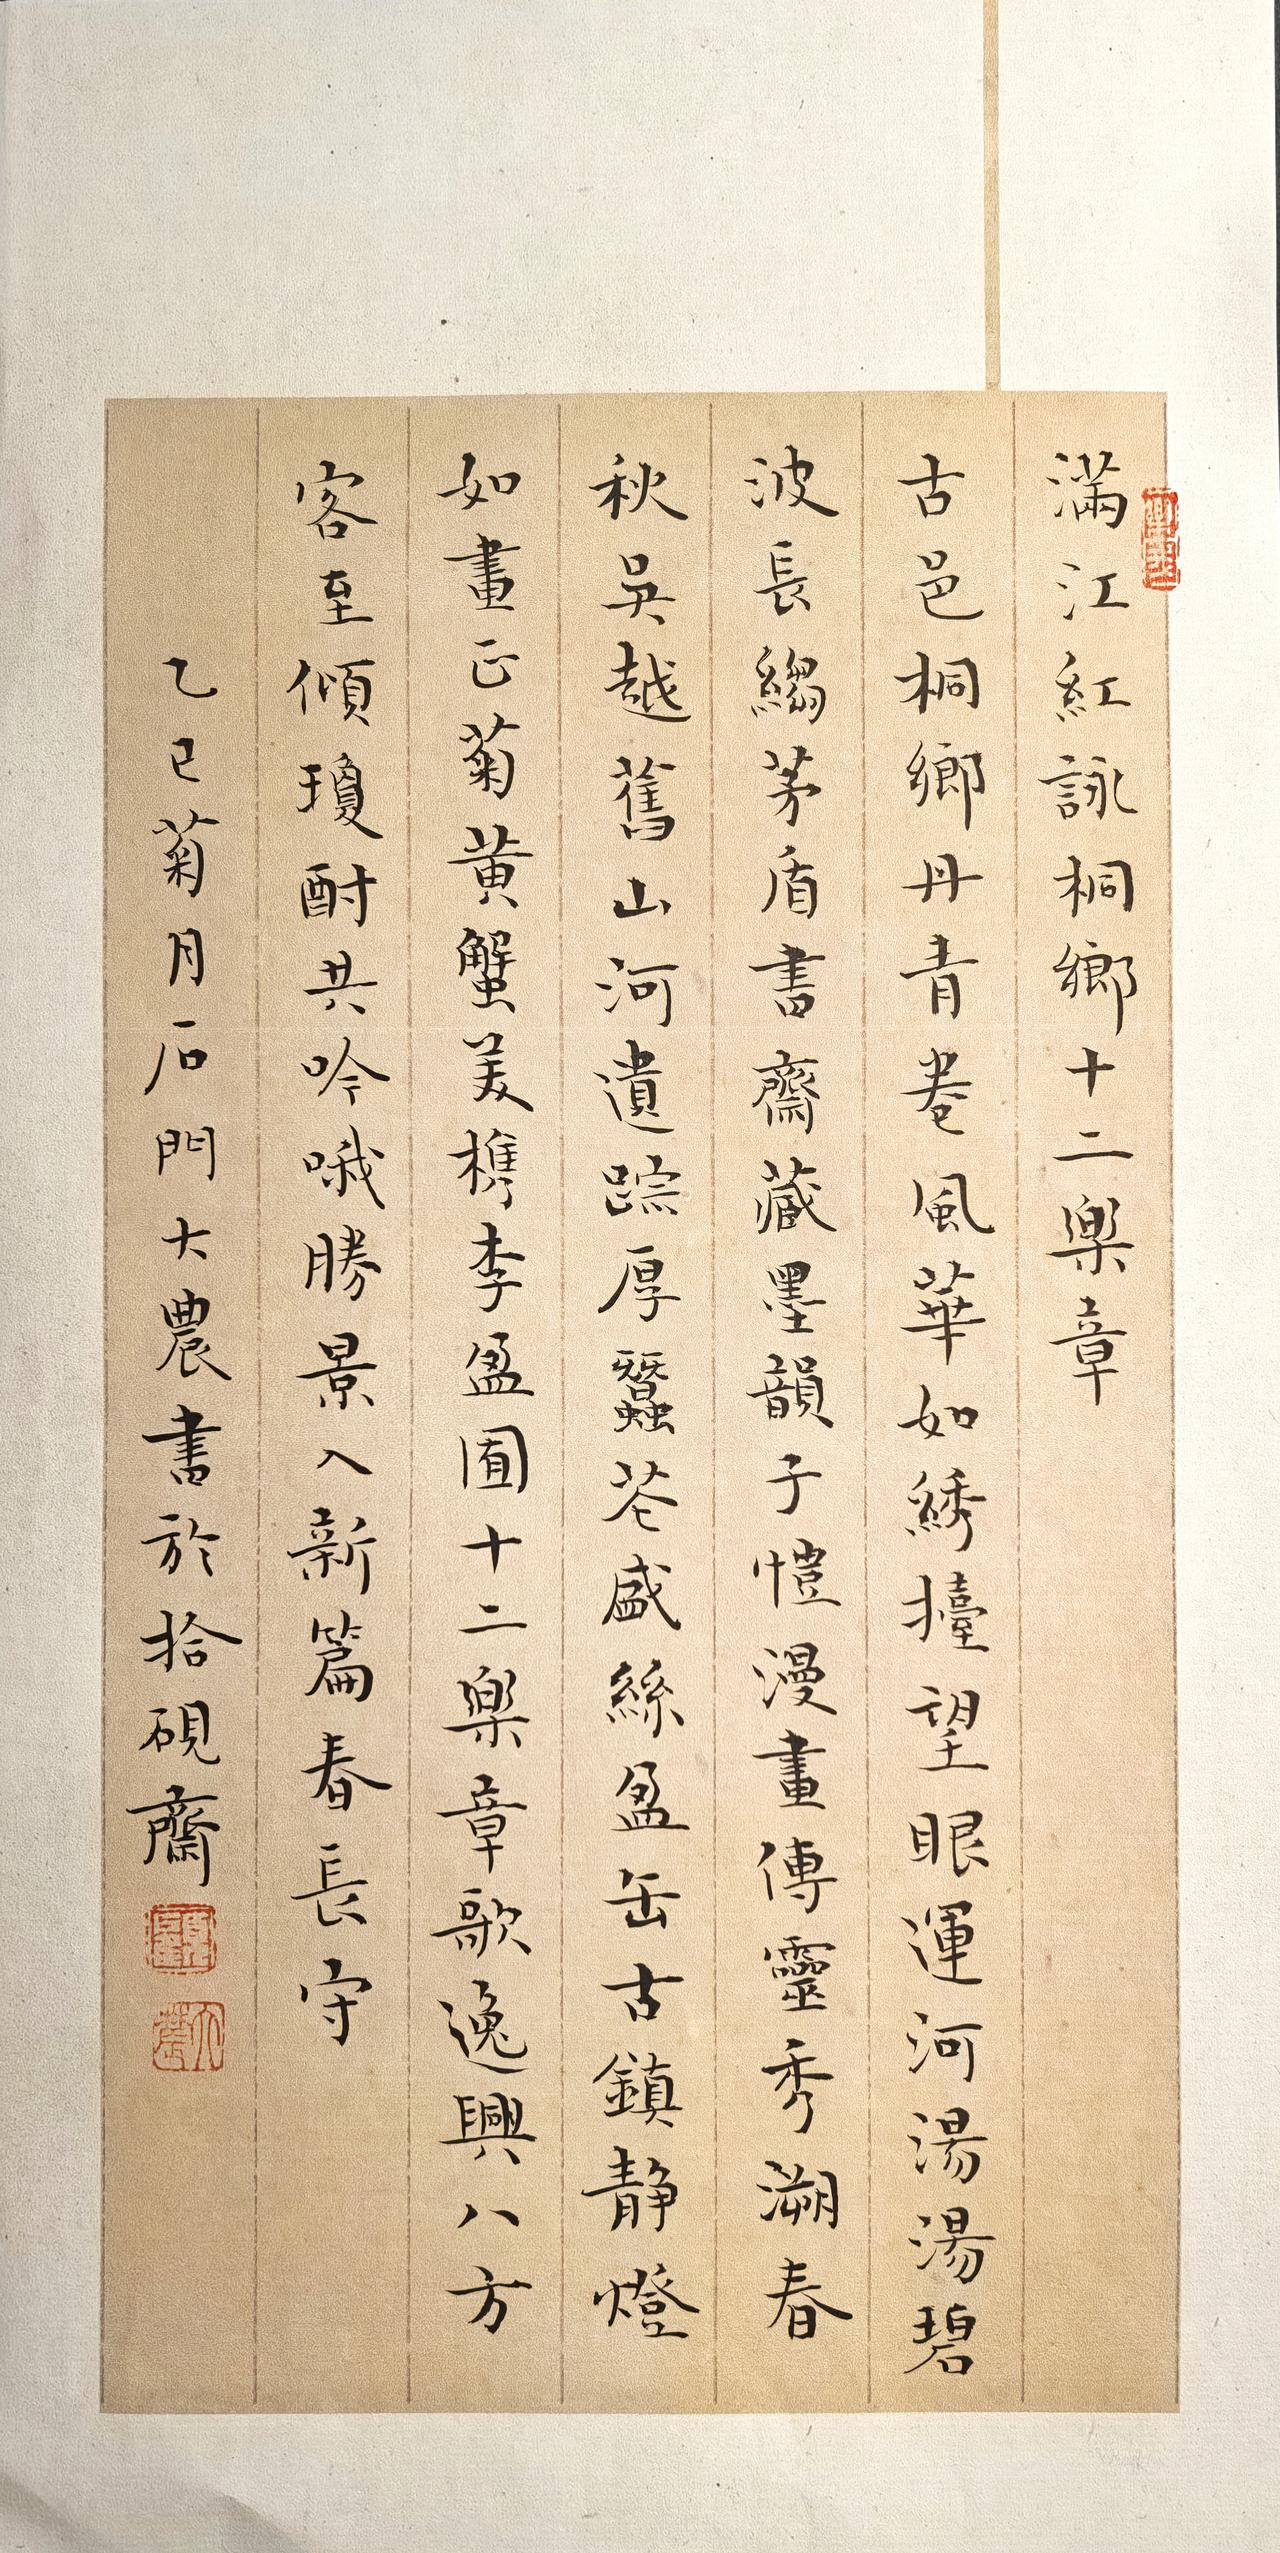 滿江紅詠桐鄉十二樂章
古邑桐鄉丹青卷風華如綉擡望眼運河湯湯碧
波長縐茅盾書齋藏墨韻子愷漫畫傳靈秀溯春
秋吳越舊山河遺踪厚蠶花盛絲盈缶古鎮静燈
如畫正菊黄蟹美檇李盈囿十二樂章歌逸興八方
客至傾瓊酎共吟哦勝景入新篇春長守
乙巳菊月石門大農書於拾硯齋
大農